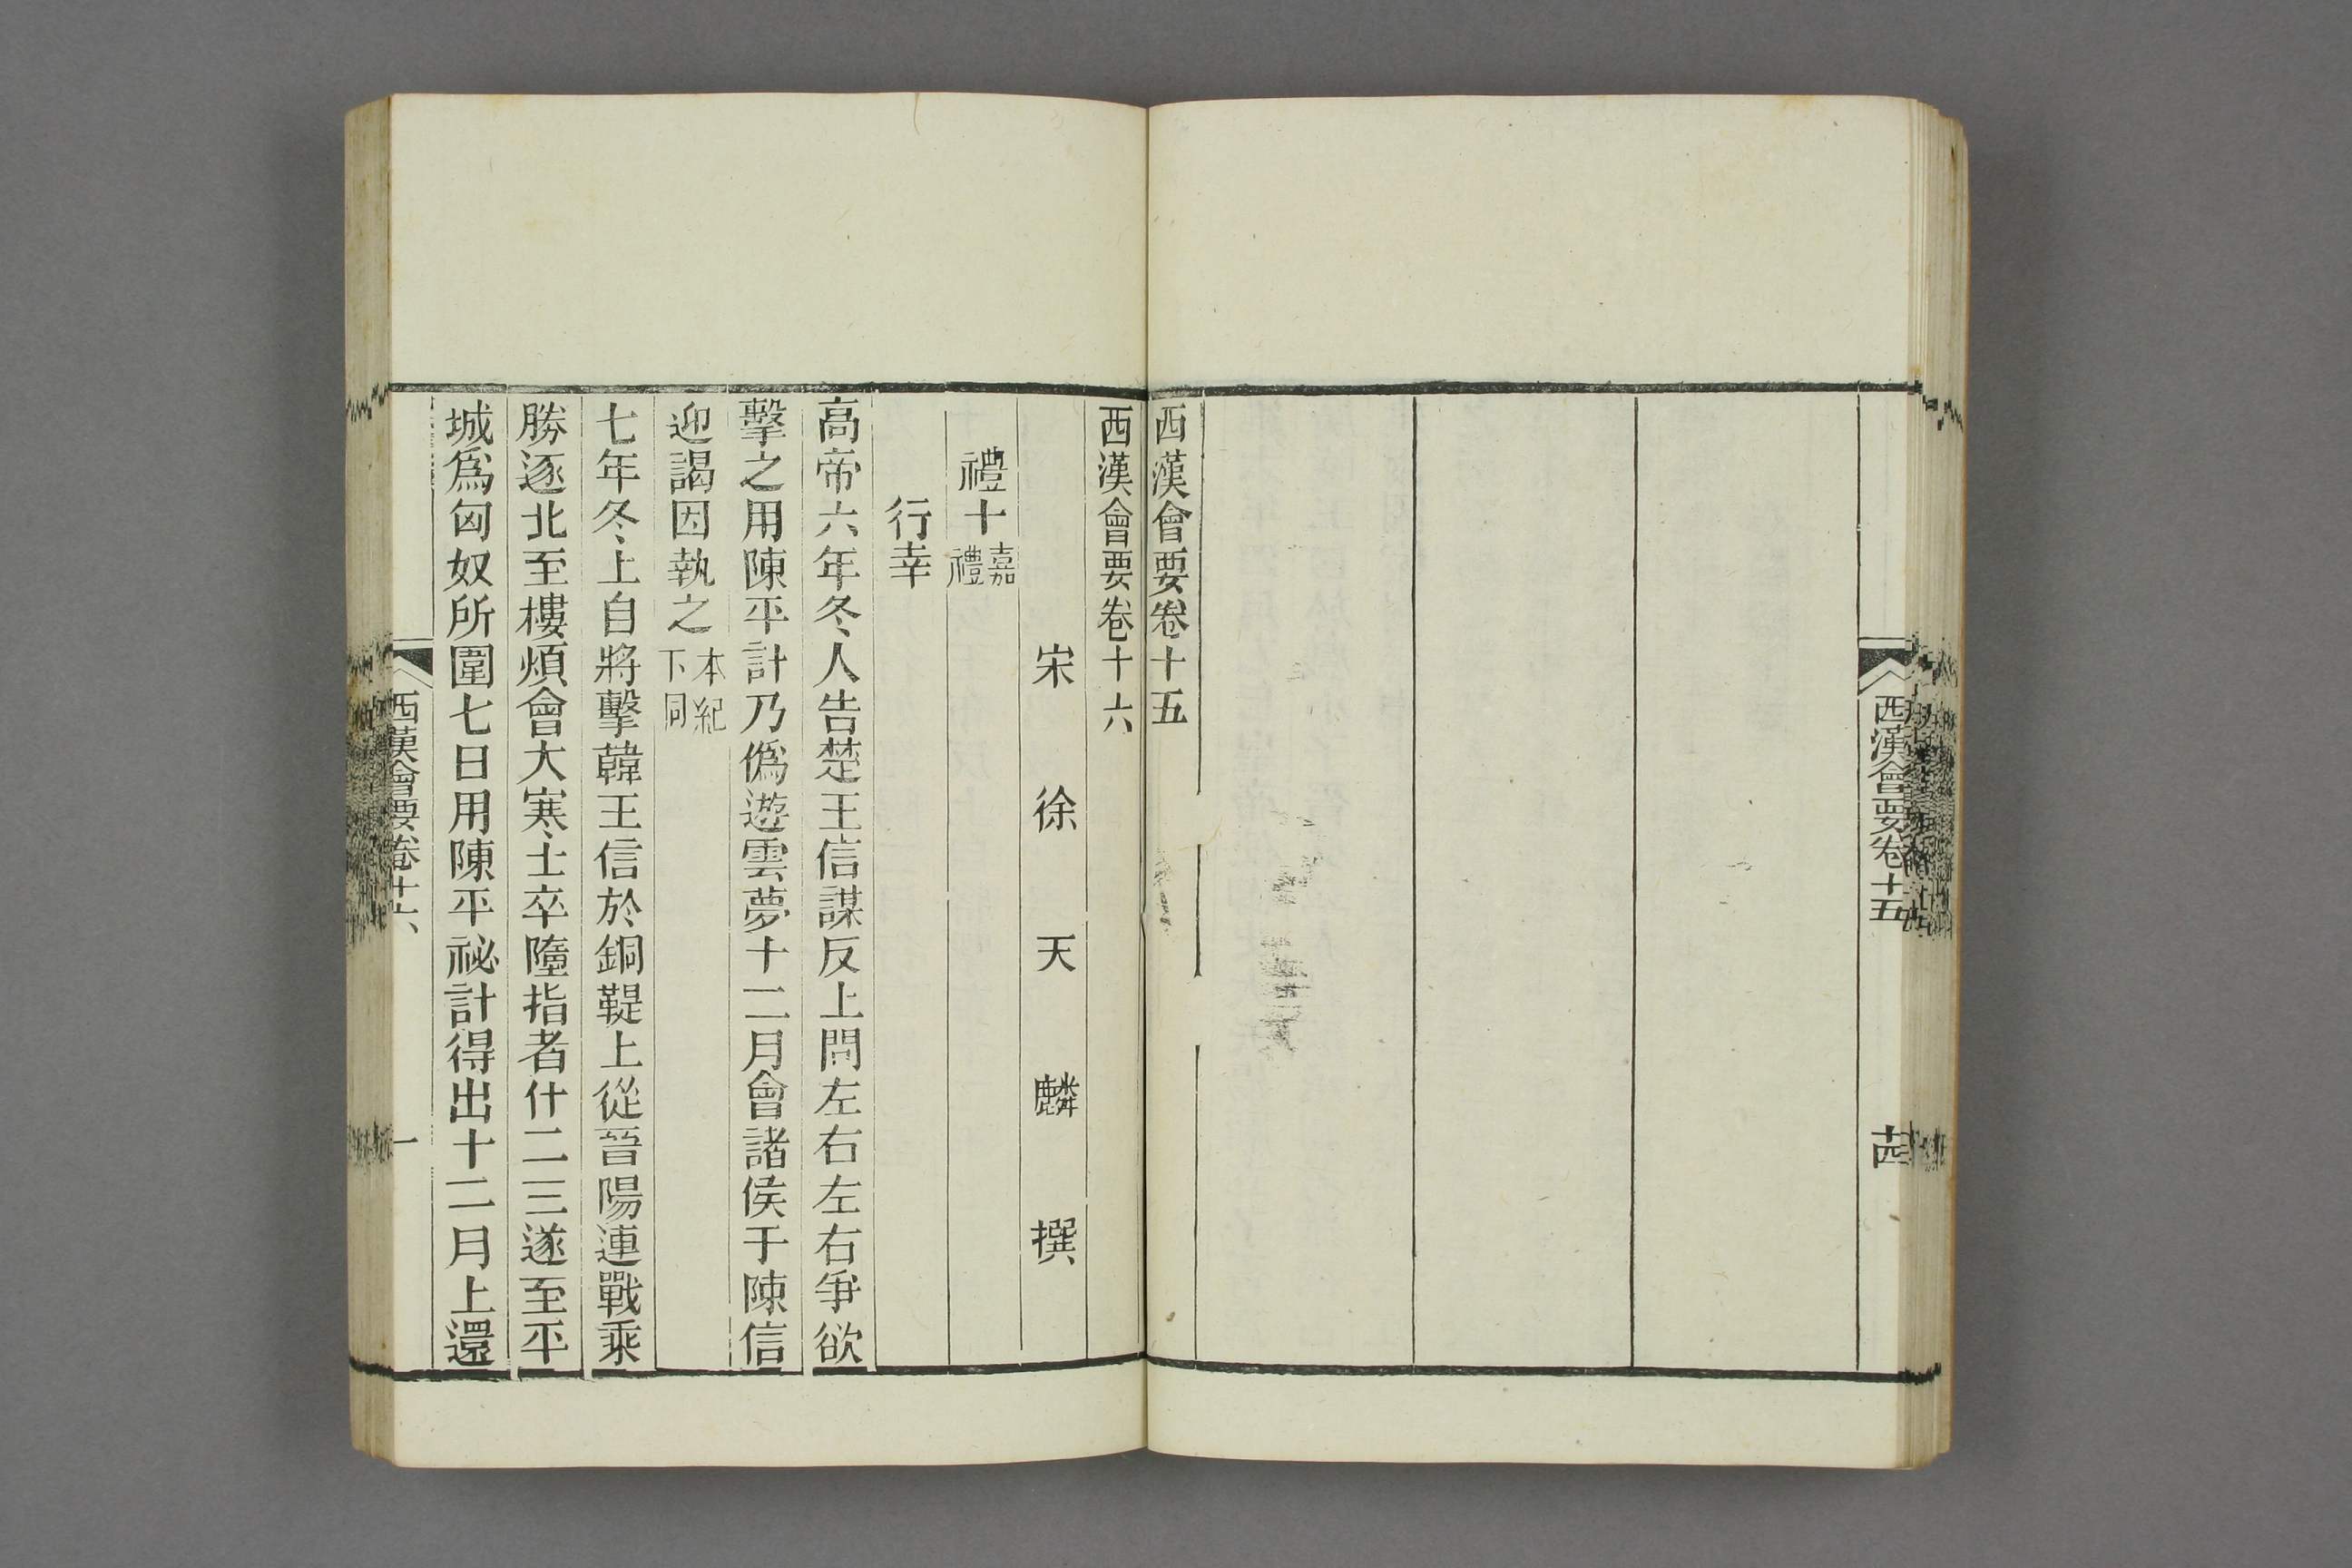 西漢會要卷十五
十四
西漢會要卷十五
西漢會要卷十六
宋徐天麟撰
禮十嘉禮
行幸
高帝六年冬人告楚王信謀反上問左右左右爭欲
擊之用陳平計乃僞遊雲夢十二月會諸侯于陳信
迎謁因執之本紀下同
七年冬上自將擊韓王信於銅鞮上從晉陽連戰乘
勝逐北至樓煩會大寒士卒墮指者什二三遂至平
城爲匈奴所圍七日用陳平祕計得出十二月上還
西漢會要卷十六
一